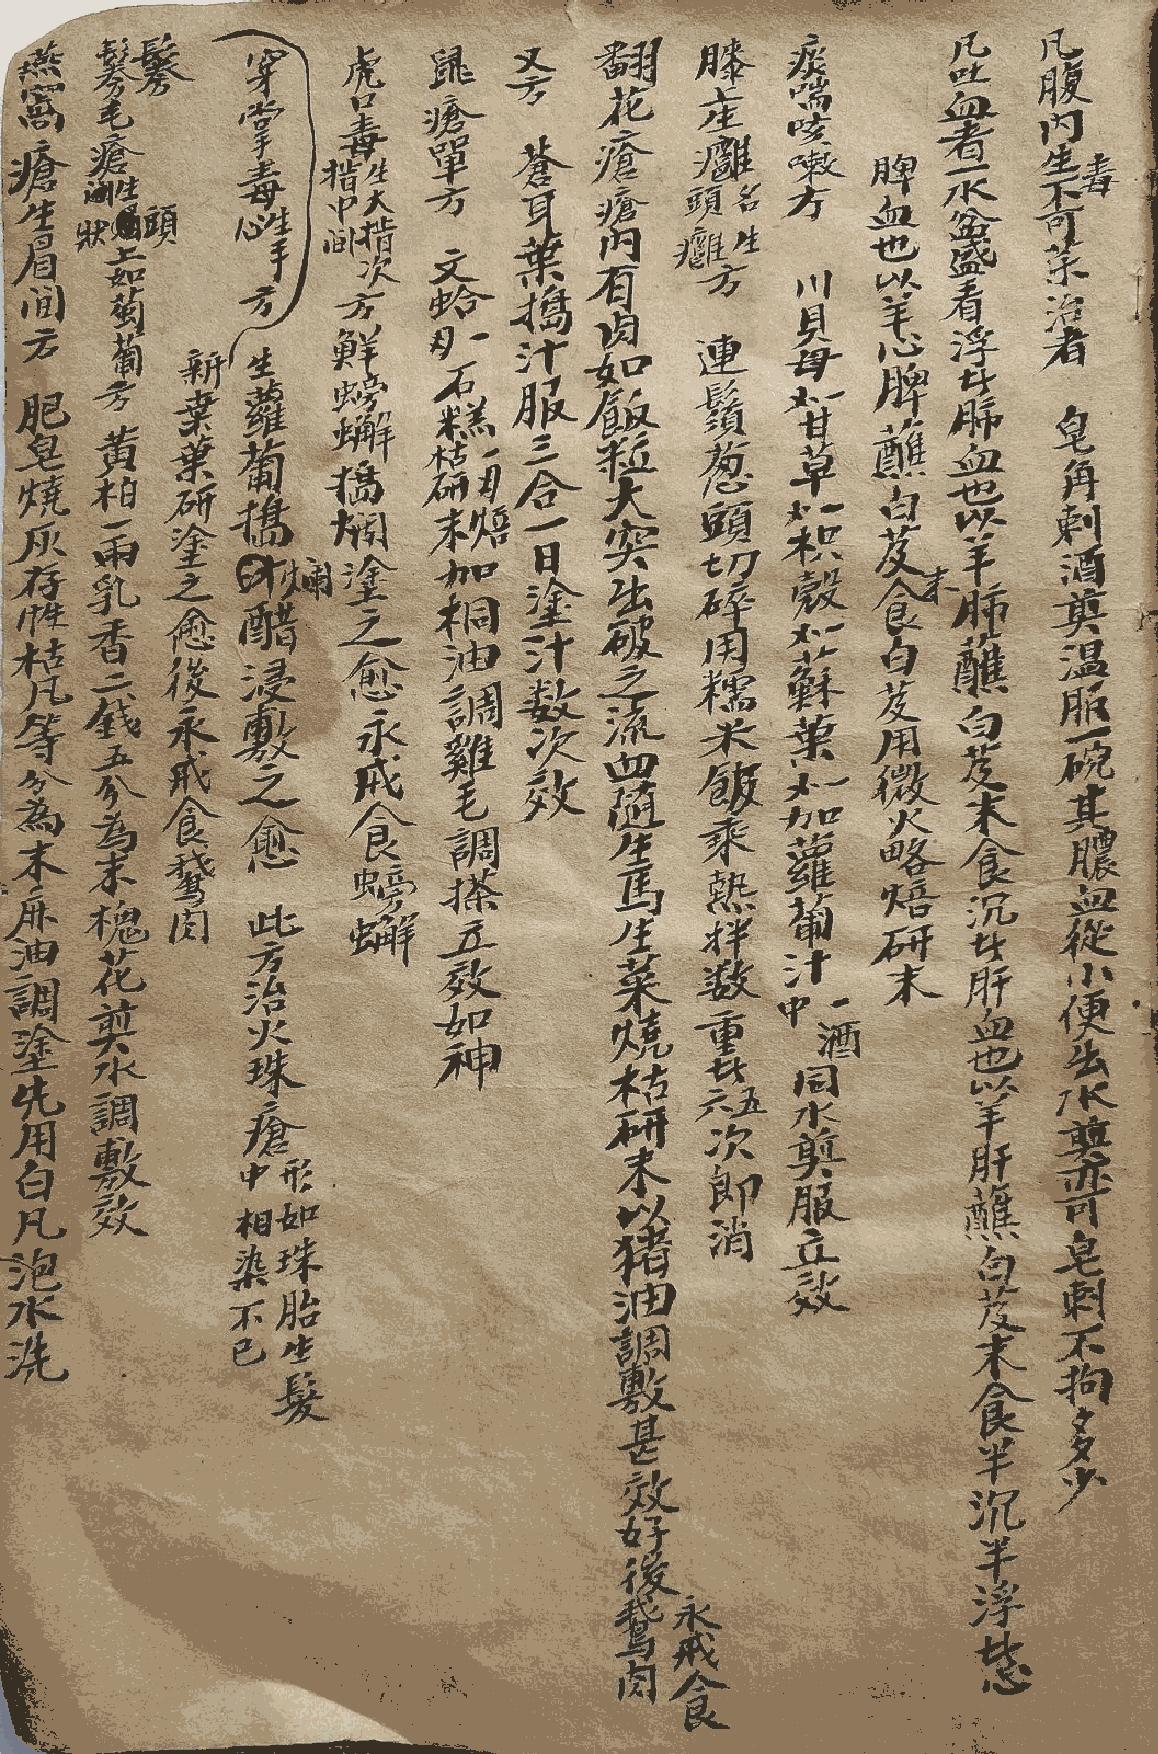 凡腹内生毒不可茶治者　皂角刺酒煎温服一碗其膿血從小便出水煎亦可皂刺不拘多少
凡吐血者一水盆盛看浮者肺血也以羊肺蘸白芨末食沉者肝血也以羊肝蘸白芨末食半沉半浮者心
脾血也以羊心脾蘸白芨末食白芨用微火略焙研末
痰喘咳嗽方　川貝母 甘草 枳殼 蘇葉 加蘿蔔汁一中酒同水煎服立效
膝疽癰名生頭癰方　連鬚葱頭切碎用糯米飯乘熱拌数重者五六次即消
翻花瘡瘡内有肉如飯粒大突出破之流血随生馬生菜燒枯研末以猪油調敷甚效好後永戒食鵝肉
又方　蒼耳葉搗汁服三合一日塗汁数次效
鼠瘡單方　文蛤一 石糕一 焙枯研末加桐油調雞毛調搽立效如神
虎口毒生大指次指中间方 鮮螃蠏搗爛塗之愈永戒食螃蠏
穿掌毒生手心方 生蘿蔔搗爛醋浸敷之愈　此方治火珠瘡形如珠胎生髮中相染不已
新桑葉研塗之愈後永戒食鵝肉
鬎毛瘡生頭上如葡萄狀方 黄柏一兩乳香二錢五分為末槐花煎水調敷效
燕窩瘡生眉间方　肥皂燒灰存性枯凡等分為末麻油調塗先用白凡泡水洗